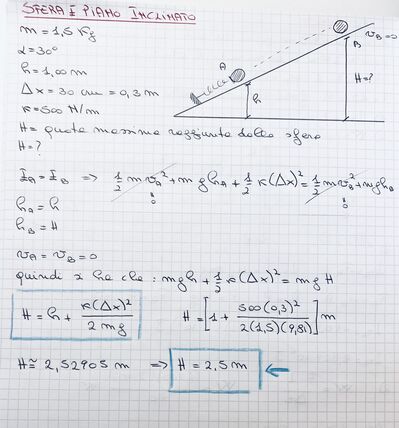 SFERA E PIANO INCLINATO
m = 1,5 Kg
α = 30°
h = 1,00 m
Δx = 30 cm = 0,3 m
K = 500 N/m
H = quota massima raggiunta dalla sfera
H = ?
A
h
B
v_B = 0
H = ?
E_A = E_B => 1/2 m v_A² + m g h_A + 1/2 K(Δx)² = 1/2 m v_B² + m g h_B
0 0
h_A = h
h_B = H
v_A = v_B = 0
quindi si ha che : mgh + 1/2 K(Δx)² = mgH
H = h + K(Δx)² / 2mg H = [1 + 500(0,3)² / 2(1,5)(9,81)] m
H ≅ 2,52905 m => H = 2,5 m ←